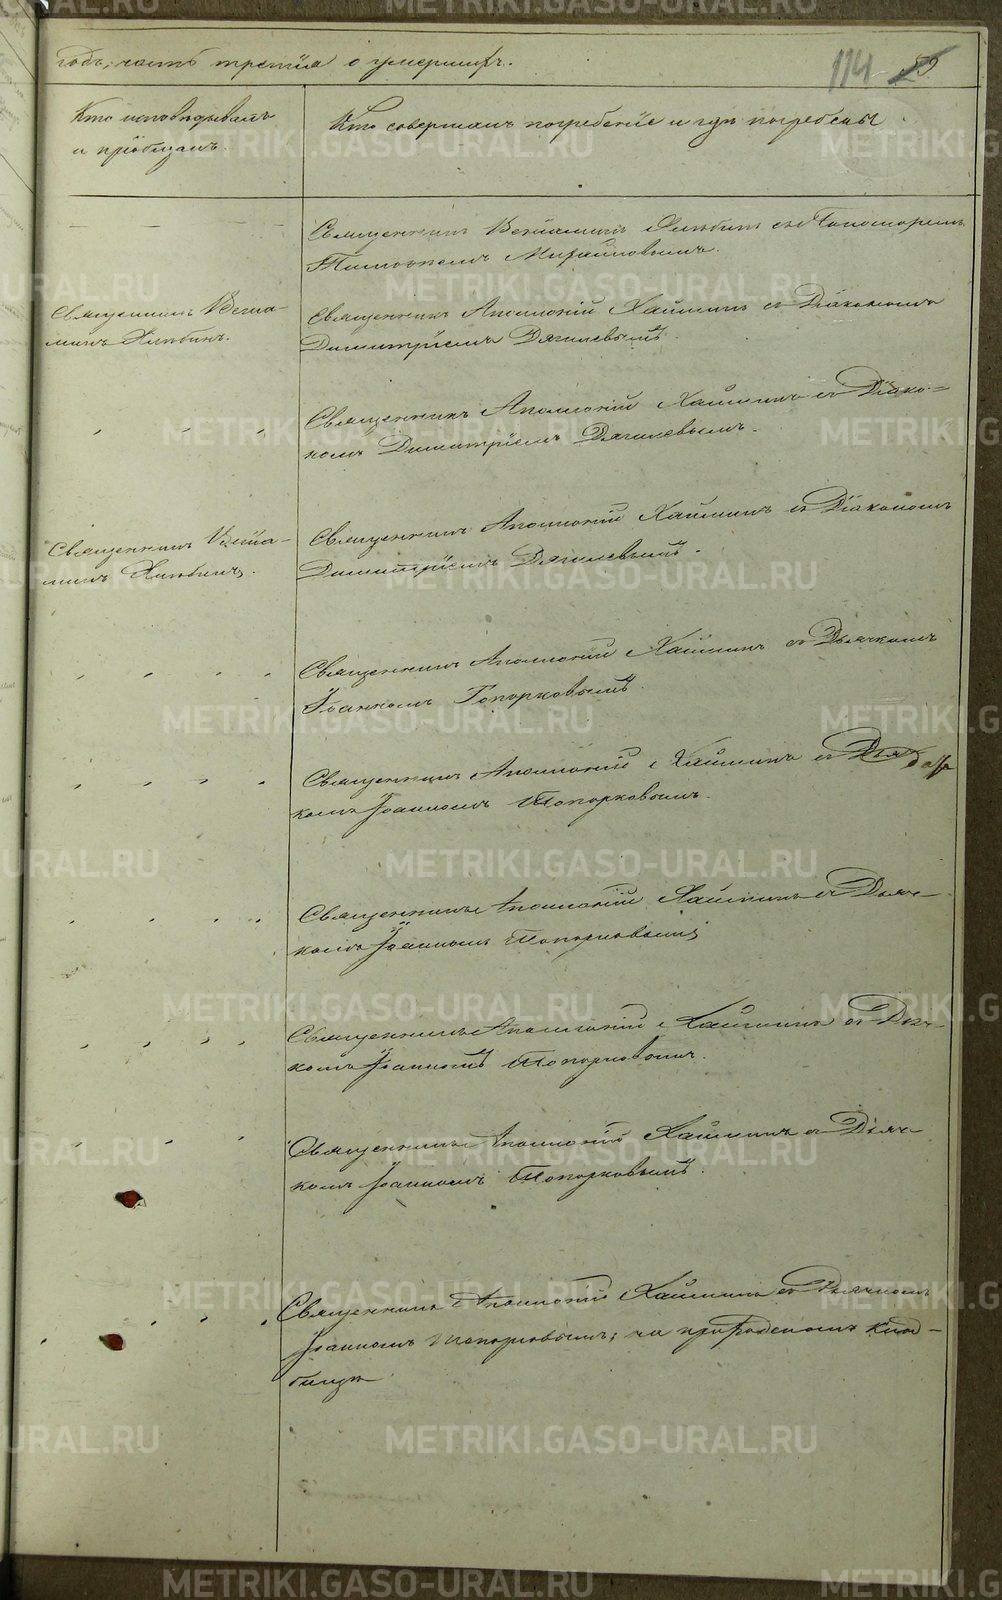 годъ, часть третія о умершихъ.
114
55
Кто исповѣдывалъ
и пріобщалъ.
Кто совершалъ погребеніе и гдѣ погребены
Священникъ Веніаминъ Хлыбинъ съ Пономаремъ
Михайловымъ.
Священникъ Веніа-
минъ Хлыбинъ.
Священникъ Аполлоній Хаминъ съ Діакономъ
Димитріемъ Дягилевымъ.
Священникъ Аполлоній Хаминъ съ Діако-
номъ Димитріемъ Дягилевымъ.
Священникъ Веніа-
минъ Хлыбинъ.
Священникъ Аполлоній Хаминъ съ Діакономъ
Димитріемъ Дягилевымъ.
Священникъ Аполлоній Хаминъ съ Дьячкомъ
Іоанномъ Топорковымъ.
Священникъ Аполлоній Хаминъ съ Дьяч-
комъ Іоанномъ Топорковымъ.
Священникъ Аполлоній Хаминъ съ Дьяч-
комъ Іоанномъ Топорковымъ
Священникъ Аполлоній Хаминъ съ Дьяч-
комъ Іоанномъ Топорковымъ.
Священникъ Аполлоній Хаминъ съ Дьяч-
комъ Іоанномъ Топорковымъ.
Священникъ Аполлоній Хаминъ съ Дьячкомъ
Іоанномъ Топорковымъ; на приходскомъ клад-
бищѣ
METRIKI.GASO-URAL.RU